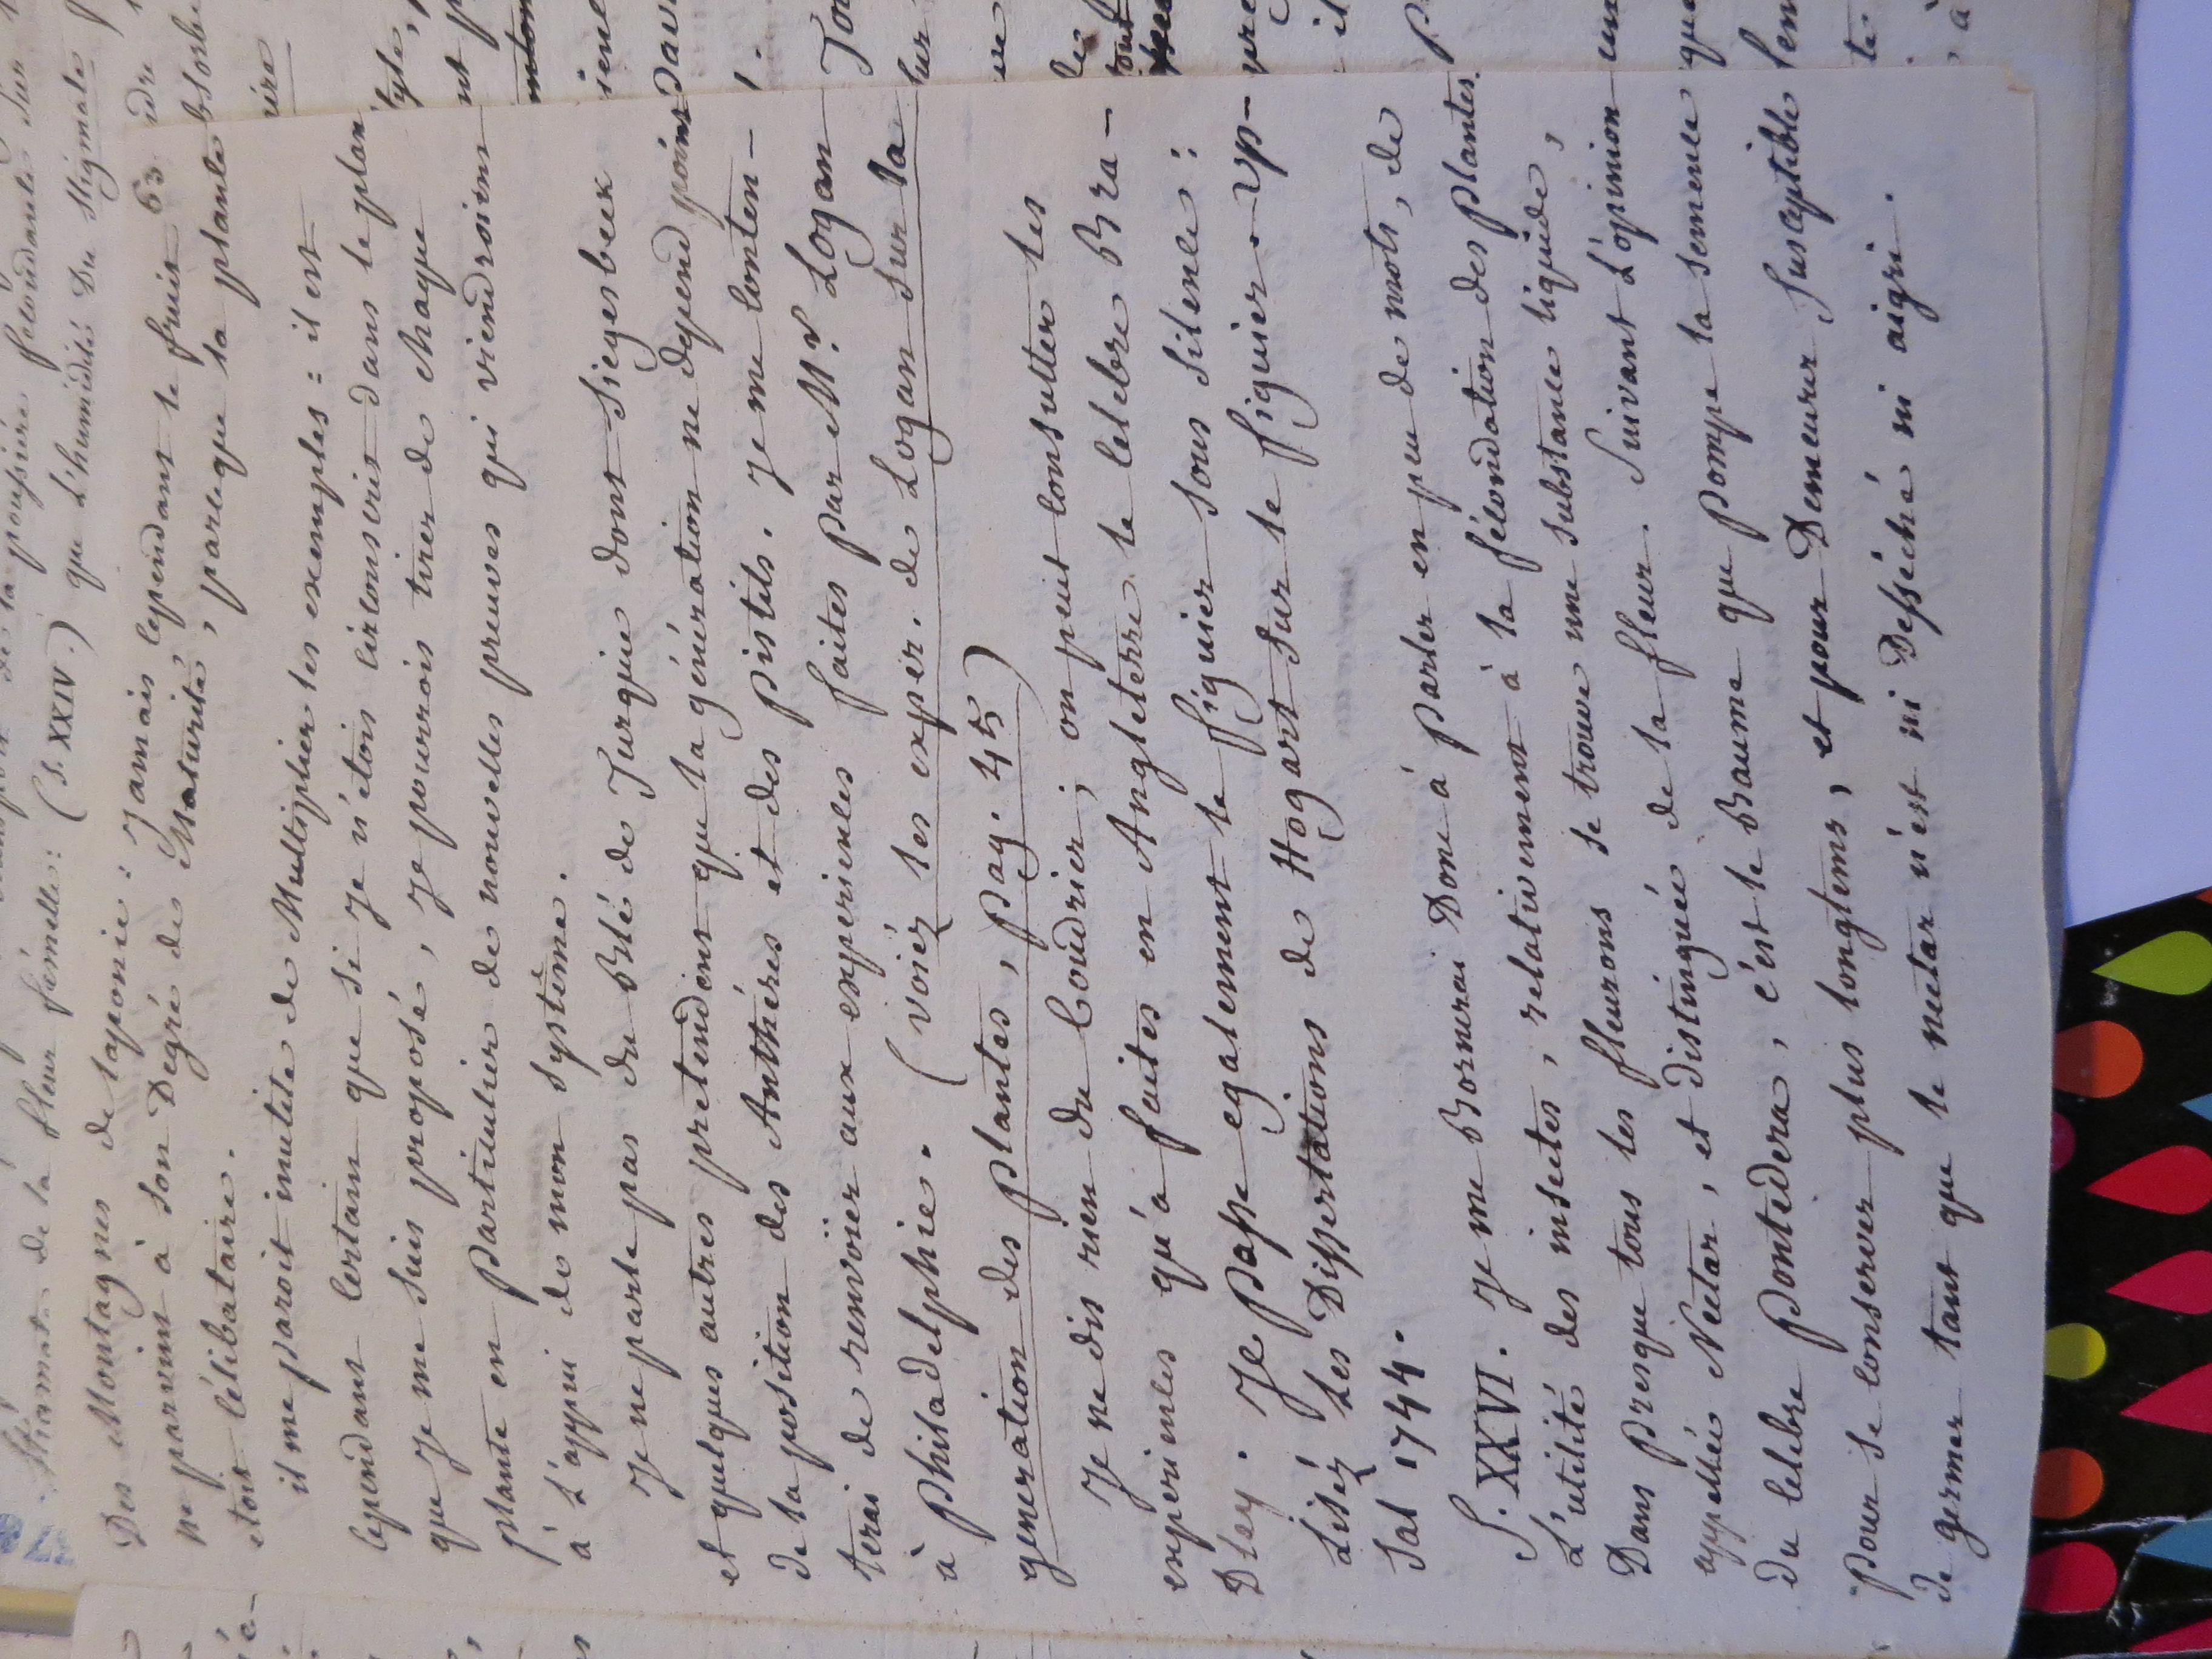 fleur fémelle: (§. XXIV.) que l'humidité du stigmate
63
Des Montagnes de laponie : Jamais cependant le fruit
ne parvint à son Degré de Maturité, parceque la plante
etoit célibataire.
il me paroit inutile de Multiplier les exemples : il est
cependant certain que si je n'étois circonscrit dans le plan
que je me suis proposé, je pourrois tirer de chaque
plante en particulier de nouvelles preuves qui viendroient
à l'appui de mon système.
Je ne parle pas du Blé de Turquie dont Siegesbeck
et quelques autres prétendent que la génération ne dépend point
de la position des Anthéres et des pistils. je me conten-
terai de renvoier aux experiences faites par Mr. Logan
à Philadelphie. (voiéz les exper. de Logan sur la
generation des plantes, pag. 45)
Je ne dis rien du Coudrier; on peut consulter les
expériences qu'a faites en Angleterre le celebre Bra-
Dley. Je passe egalement le figuier sous silence :
Liséz les Dissertations de Hogart sur le figuier. Up-
sal 1744.
§. XXVI. Je me Bornerai Donc à parler en peu de mots, de
L'utilité des insectes, relativement à la fécondation des plantes.
Dans presque tous les fleurons se trouve une substance liquide,
appellée Nectar, et distinguée de la fleur. Suivant l'opinion
du celebre Pontedera, c'est le Baume que pompe la semence
pour se conserver plus longtems, et pour Demeurer susceptible
de germer tant que le nectar n'est ni Desséché ni aigri.